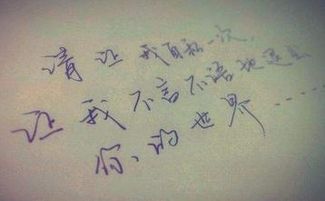 请让我自私一次，
让我不言不语地退出
你、的世界……